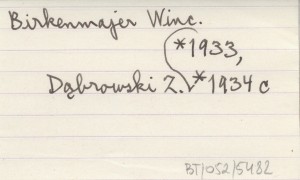 Birkenmajer Winc.
*1933,
Dąbrowski Z. *1934 c
BT/052/5482